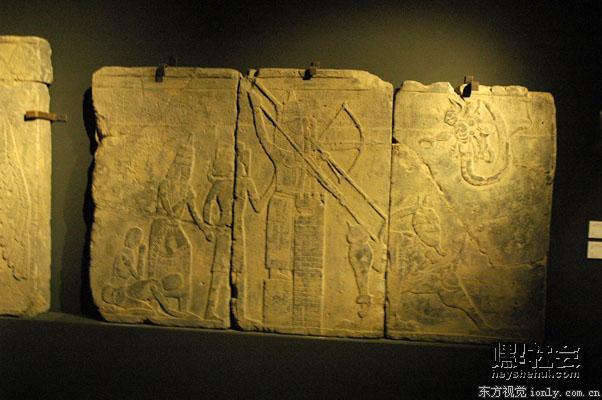 嘿!社会
heyshehui.com
东方视觉 ionly.com.cn